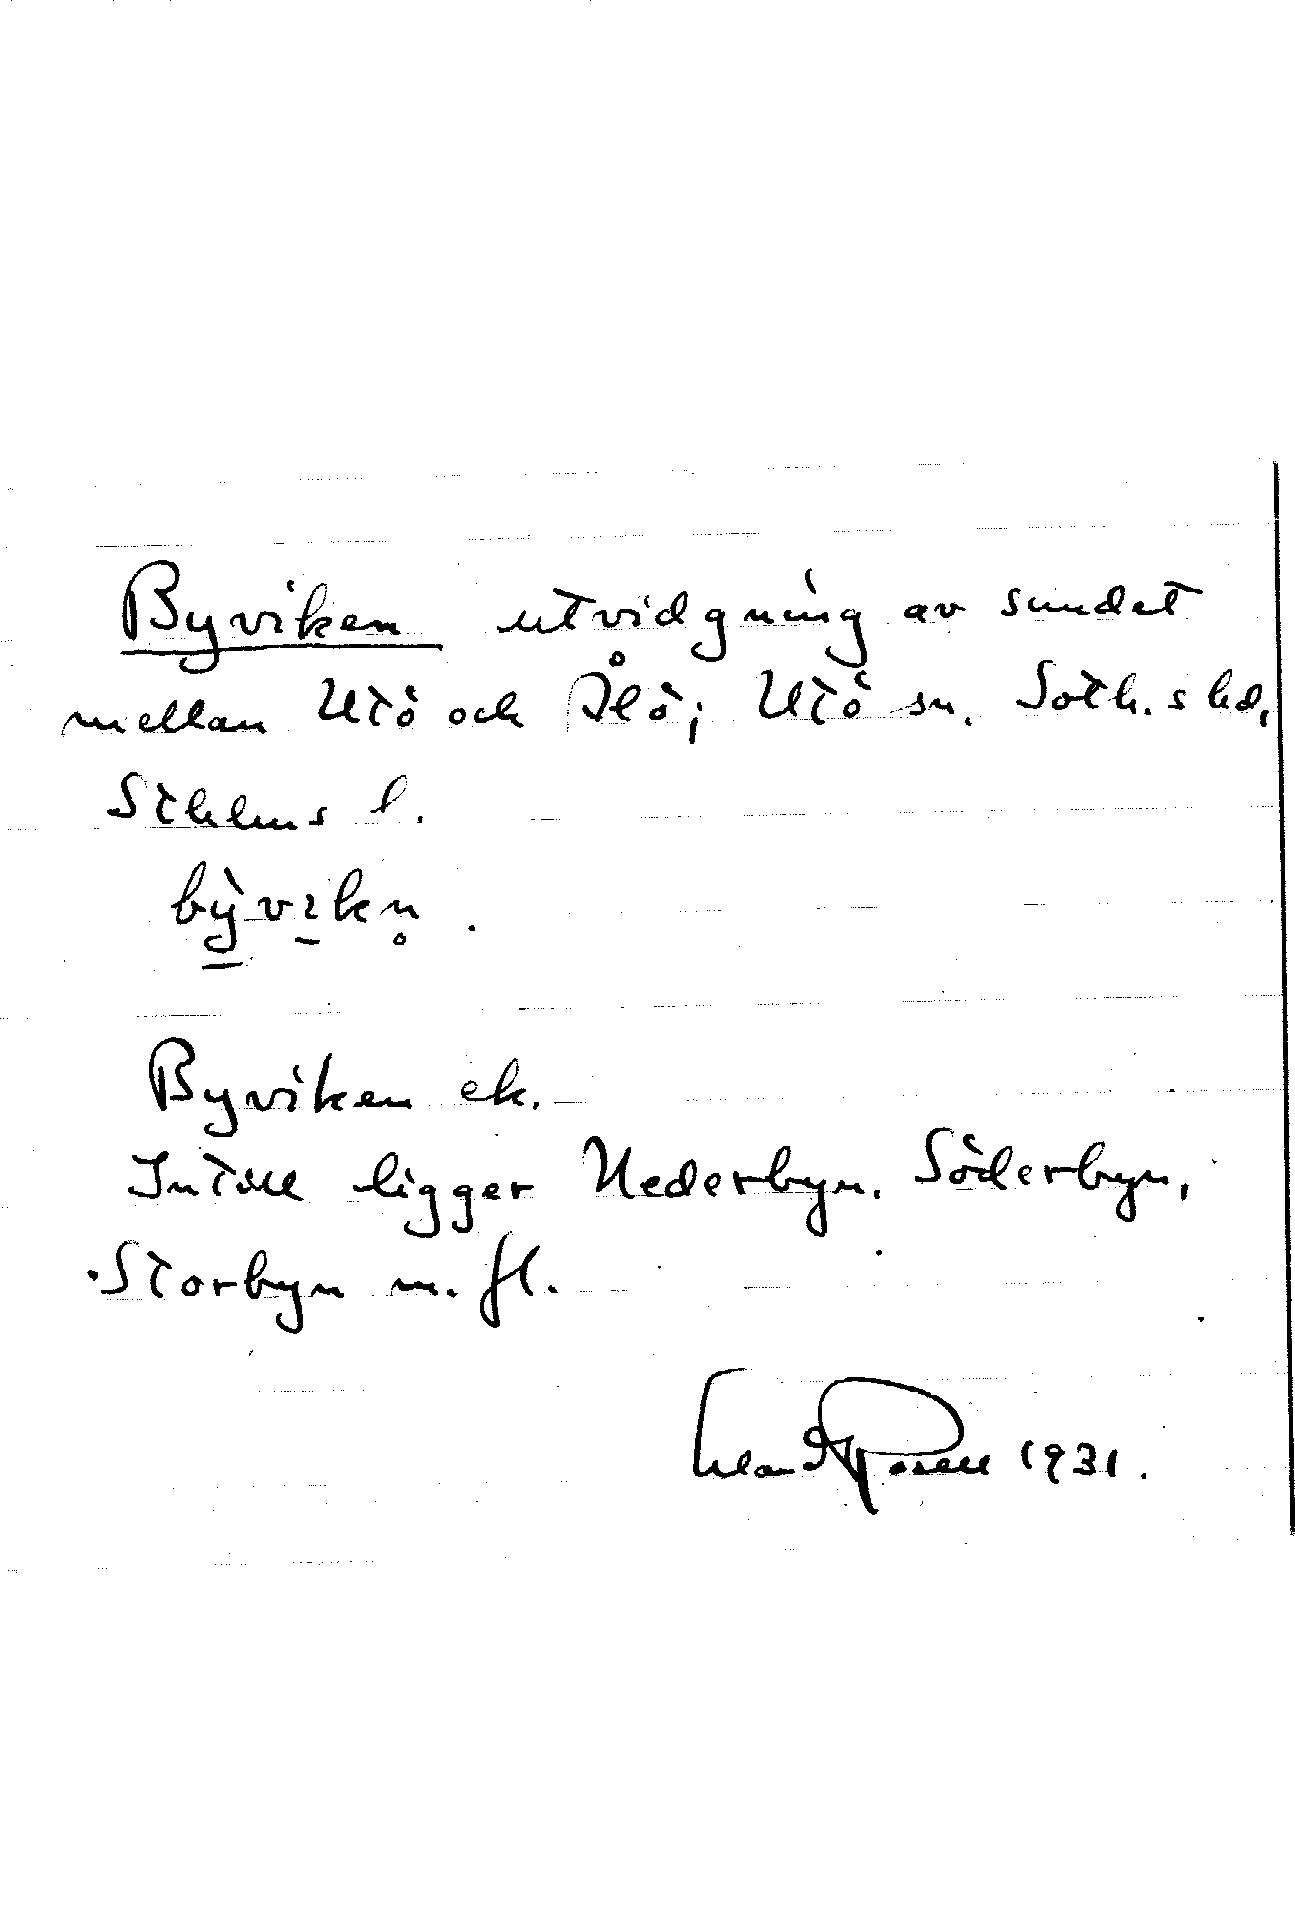 Byviken utvidgning av sundet
mellan Utö och Ålö; Utö sn. Soth.s hd,
Sthlms l.
bỳ̱vi̱kn̥.
Byviken ek.
Intill ligger Nederbyn. Söderbyn,
Storbyn m. fl.
1931.